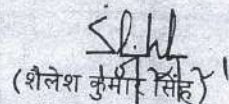 (शैलेश कुमार सिंह)